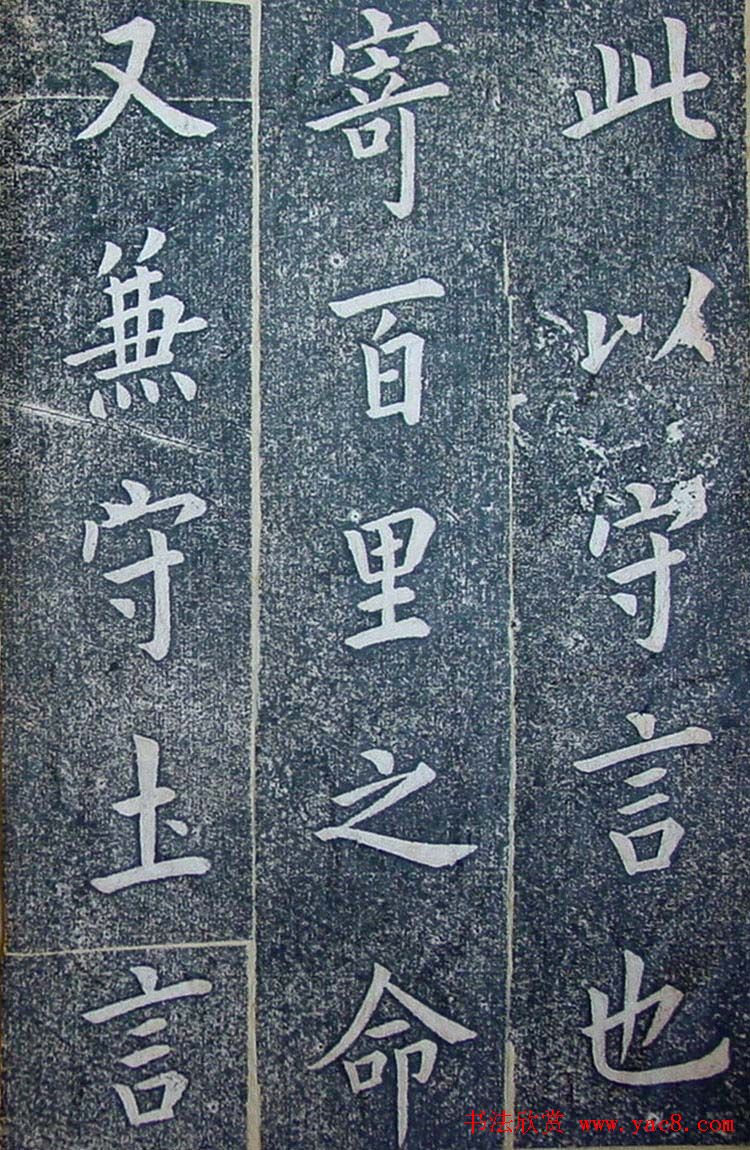 此以守言也
寄百里之命
又兼守土言
书法欣赏 www.yac8.com